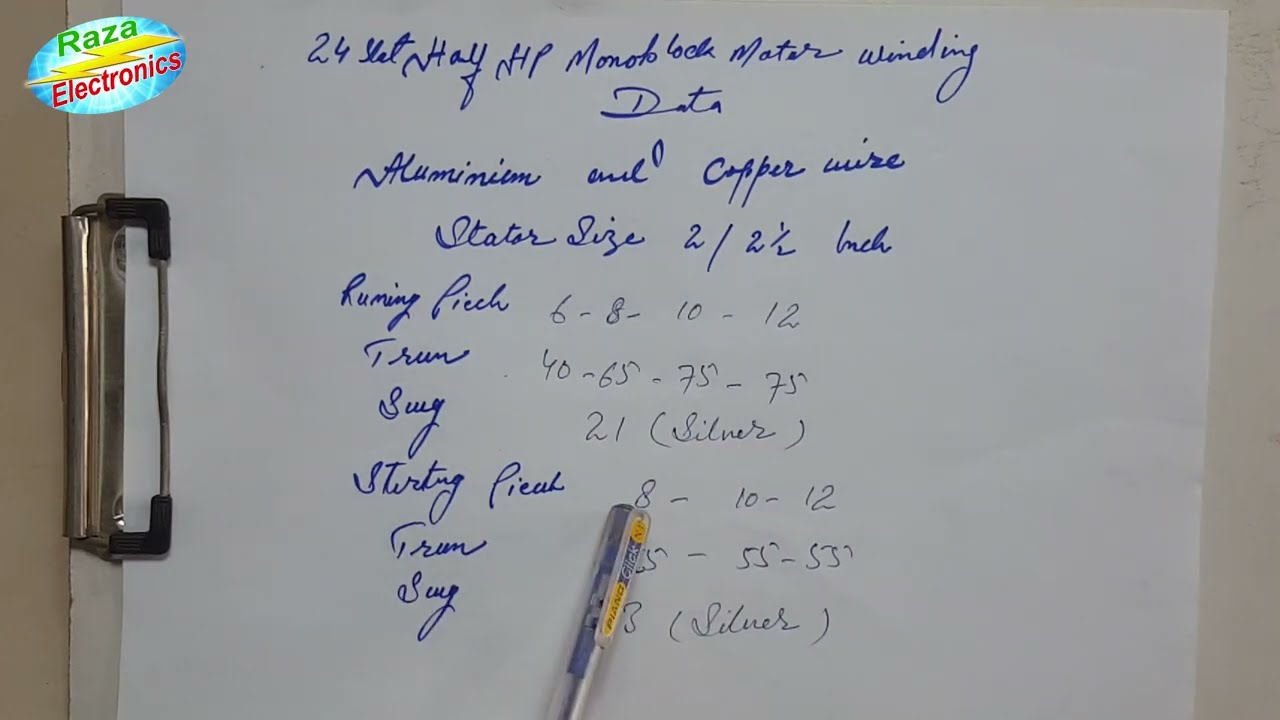 Raza
Electronics
24 Slot Half HP Monoblock Moter winding
Data
Aluminium and Copper wire
Stator Size 2/2½ Inch
Runing Picch 6 - 8 - 10 - 12
Trun 40 - 65 - 75 - 75
Swg 21 (Silver)
Sterting Picch 8 - 10 - 12
Trun 5 - 55 - 55
Swg 3 (Silver)
PIANO Click